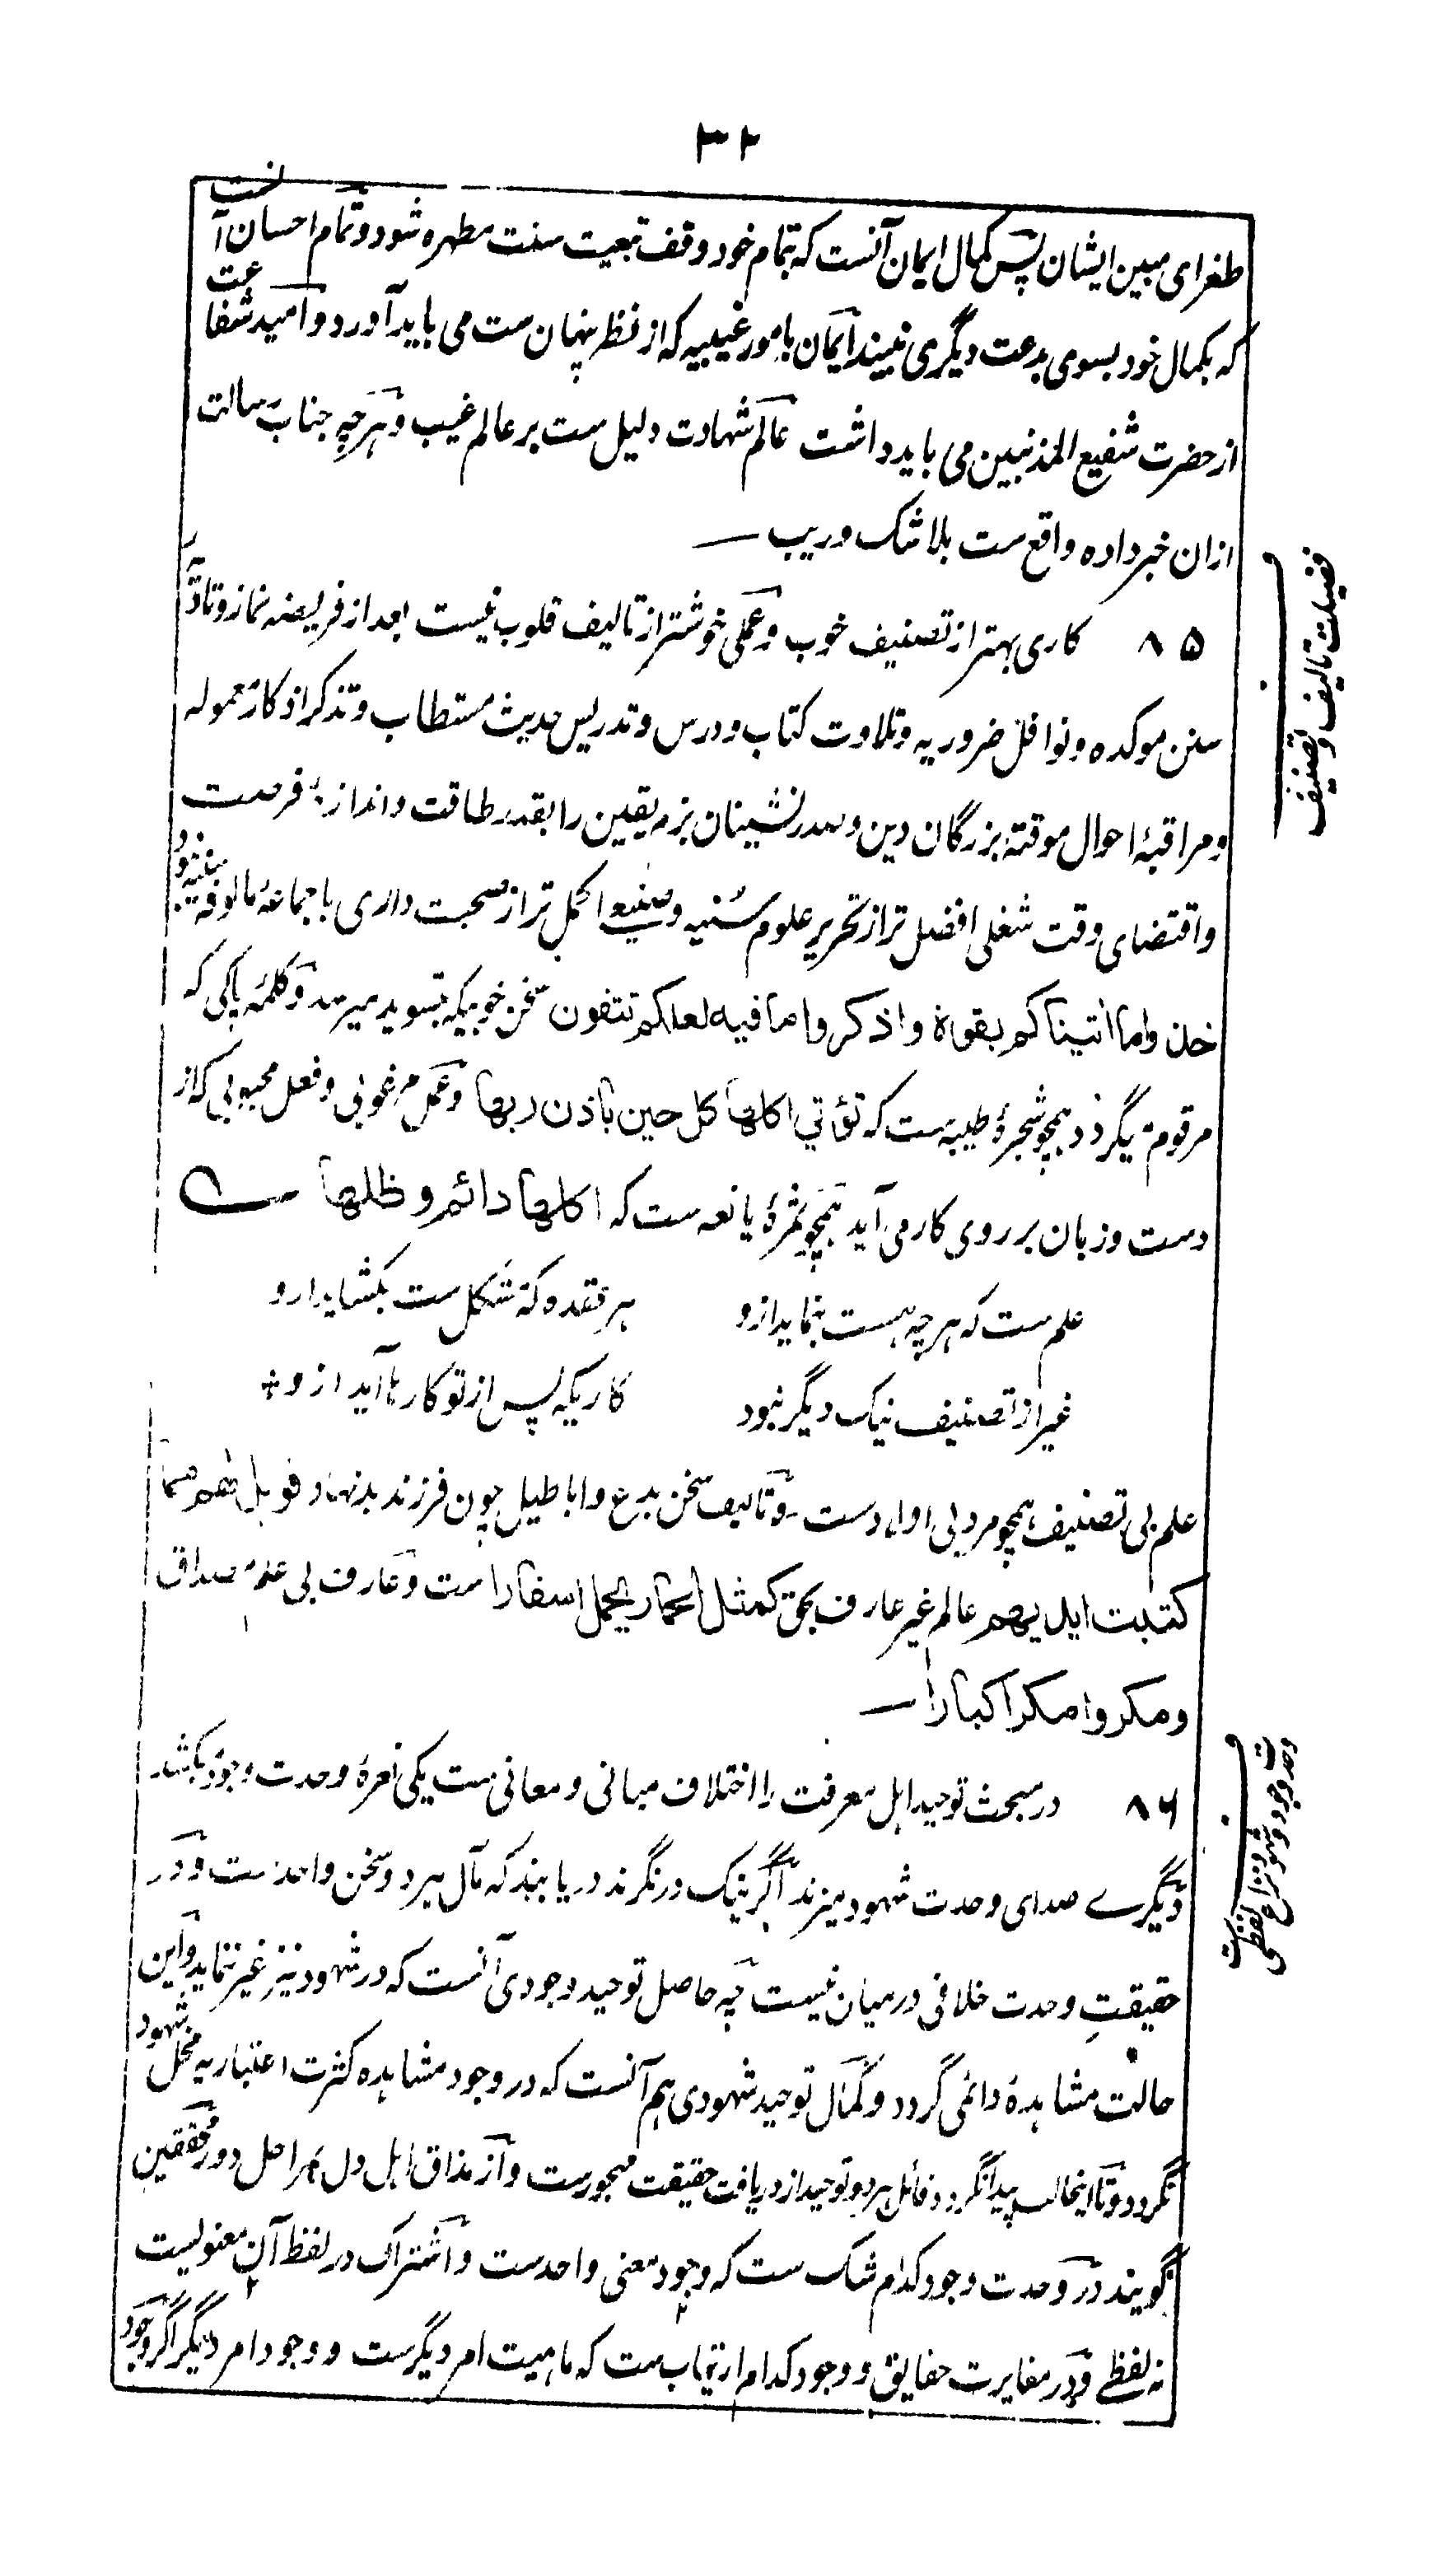 ۳۲
طغرای مبین ایشان پس کمال ایمان آنست که بتمام خود وقف تبعیت سنت مطهره شود و تمام احسان آنست
که بکمال خود بسوی بدعت دیگری نبیند ایمان بامور غیبیه که از نظر پنهان ست می باید آورد و امید شفاعت
از حضرت شفیع المذنبین می باید داشت عالم شهادت دلیل ست بر عالم غیب و هرچه جناب رسالت
ازان خبر داده واقع ست بلا شک و ریب —
۸۵ کاری بهتر از تصنیف خوب و عملی خوشتر از تالیف قلوب نیست بعد از فریضه نماز و تادیه
سنن موکده و نوافل ضروریه و تلاوت کتاب و درس و تدریس حدیث مستطاب و تذکر اذکار معموله
و مراقبهٔ احوال موقتهٔ بزرگان دین و صدر نشینان بزم یقین را بقدر طاقت و اندازهٔ فرصت
و اقتضای وقت شغلی افضل تر از تحریر علوم سنیه و صنیعی اکمل تر از صحبت داری با جماعهٔ مالوفه
خذوا ما اتیناکم بقوة واذکروا ما فیه لعلکم تتقون سخن خوبیکه بتسوید میرسد و کلمهٔ پاکی که
مرقوم میگردد همچو شجرهٔ طیبه ست که تؤتي اکلها کل حین باذن ربها و عمل مرغوبی و فعل محبوبی که از
دست و زبان بر روی کار می آید همچو ثمرهٔ یانعه ست که اکلها دائم و ظلها
علم ست که هر چه هست بنماید ازو هر عقده که مشکل ست بکشاید ازو
غیر از تصنیف نیک دیگر نبود کاریکه پس از تو کارها آید ازو
علم بی تصنیف همچو مرد بی اولادست و تالیف سخن بدع و اباطیل چون فرزند بدنهاد فویل لهم مما
کتبت ایدیهم عالم غیر عارف بحق کمثل الحمار یحمل اسفارا ست و عارف بی علم مصداق
ومکروا مکرا کبارا —
۸۶ در مبحث توحید اهل معرفت را اختلاف مبانی و معانی ست یکی نعرهٔ وحدت وجود بکشد
دیگرے صدای وحدت شهود میزند اگر نیک در نگرند دریابند که مآل هر دو سخن واحدست و در
حقیقتِ وحدت خلافی درمیان نیست چه حاصل توحید وجودی آنست که در شهود نیز غیر ننماید و این
حالت مشاهدهٔ دائمی گردد و کمال توحید شهودی هم آنست که در وجود مشاهده کثرت اعتباریه مخل شهود
نگردد و تا اینحالت پیدا نگردد قائل هر دو توحید از دریافت حقیقت مهجورست و از مذاق اهل دل بمراحل دور محققین
گویند در وحدت وجود کدام شک ست که وجود معنی واحدست و اشتراک در لفظ آن معنویست
نه لفظے و در مغایرت حقایق و وجود کدام ارتیاب ست که ماهیت امر دیگرست و وجود امر دیگر اگر وجود
فضیلت تالیف و تصنیف
وحدت وجود و شهود و نزاع لفظی ست